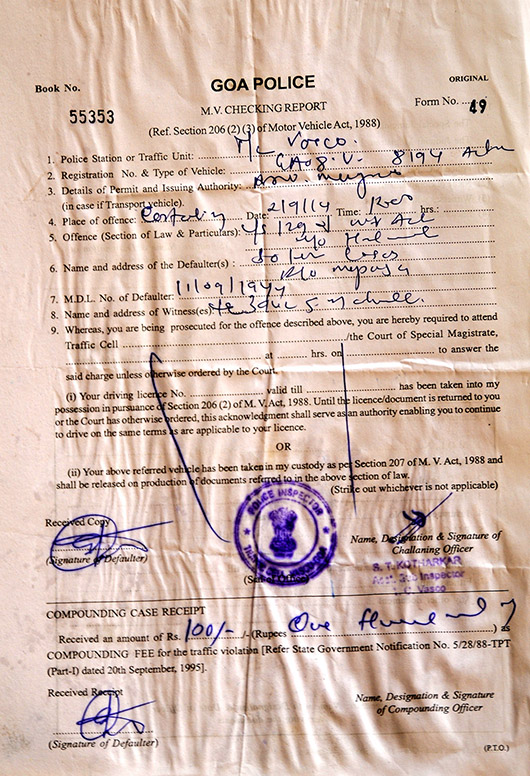 ORIGINAL
Book No. GOA POLICE
55353 M.V. CHECKING REPORT Form No. .... 49
(Ref. Section 206 (2) (3) of Motor Vehicle Act, 1988)
1. Police Station or Traffic Unit: T/C Vasco.
2. Registration No. & Type of Vehicle: GA08.V. 8194
3. Details of Permit and Issuing Authority:
(in case if Transport vehicle).
4. Place of offence: Date: 2/9/14 Time: hrs.:
5. Offence (Section of Law & Particulars): U/s 129 of MV Act
6. Name and address of the Defaulter(s) :
R/o
7. M.D.L. No. of Defaulter:
8. Name and address of Witness(es)
9. Whereas, you are being prosecuted for the offence described above, you are hereby required to attend
Traffic Cell ................/the Court of Special Magistrate,
................ at ............ hrs. on ............ to answer the
said charge unless otherwise ordered by the Court.
(i) Your driving licence No. ................ valid till ................ has been taken into my
possession in pursuance of Section 206 (2) of M. V. Act, 1988. Until the licence/document is returned to you
or the Court has otherwise ordered, this acknowledgment shall serve as an authority enabling you to continue
to drive on the same terms as are applicable to your licence.
OR
(ii) Your above referred vehicle has been taken in my custody as per Section 207 of M. V. Act, 1988 and
shall be released on production of documents referred to in the above section of law.
(Strike out whichever is not applicable)
POLICE INSPECTOR
Received Copy
Name, Designation & Signature of
(Signature of Defaulter) Challaning Officer
(Seal of Office)
S. T. KOTHARKAR
Asst. Sub Inspector
Vasco
COMPOUNDING CASE RECEIPT
Received an amount of Rs. 100/- /- (Rupees One Hundred ) as
COMPOUNDING FEE for the traffic violation [Refer State Government Notification No. 5/28/88-TPT
(Part-I) dated 20th September, 1995].
Received Receipt
Name, Designation & Signature
of Compounding Officer
(Signature of Defaulter)
(P.T.O.)